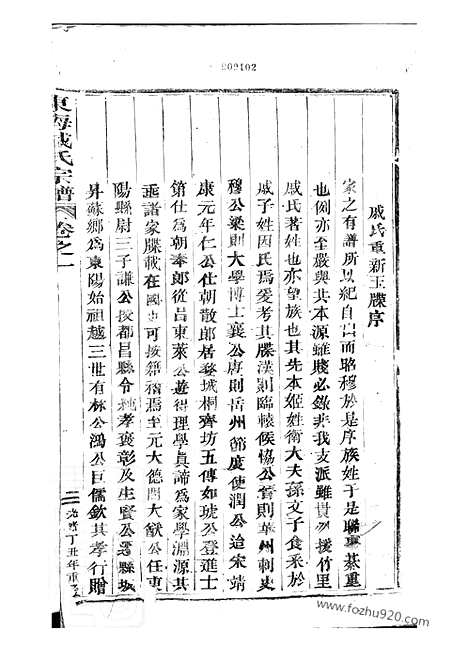 202102
戚氏重新玉牒序
家之有譜所以紀自出而昭穆於是序族姓于是聯事綦重
也例亦至嚴與共本源雖賤必錄非我支派雖貴勿援竹里
戚氏著姓也亦望族也其先本姬姓衛大夫孫文子食采於
戚子姓因氏焉爰考其牒漢則臨轅侯協公晉則華州刺史
穆公梁則大學博士袞公唐則岳州節度使潤公迨宋靖
康元年仁公仕朝散郎居婺城桐齊坊五傳如琥公登進士
第仕為朝奉郎從呂東萊公遊得理學真諦為家學淵源其
通諸家牒載在國史可按籍稽焉至元大德間大猷公任東
陽縣尉三子謙公授都昌縣令純孝褒彰及生賢公遷縣城
昇蘇鄉為東陽始祖越三世有林公鴻公巨儒欽其孝行贈
東海戚氏宗譜 卷之一
二 光緒丁丑年重
www.fozhu920.com